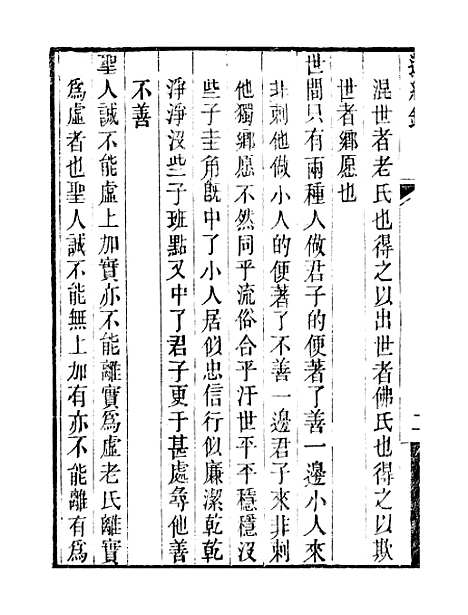 混世者老氏也得之以出世者佛氏也得之以欺
世者鄉愿也
世間只有兩種人做君子的便著了善一邊小人來
非刺他做小人的便著了不善一邊君子來非刺
他獨鄉愿不然同乎流俗合乎汙世平平穩穩沒
些子圭角旣中了小人居似忠信行似廉潔乾乾
淨淨沒些子班點又中了君子更于甚處尋他善
不善
聖人誠不能虛上加實亦不能離實爲虛老氏離實
爲虛者也聖人誠不能無上加有亦不能離有爲